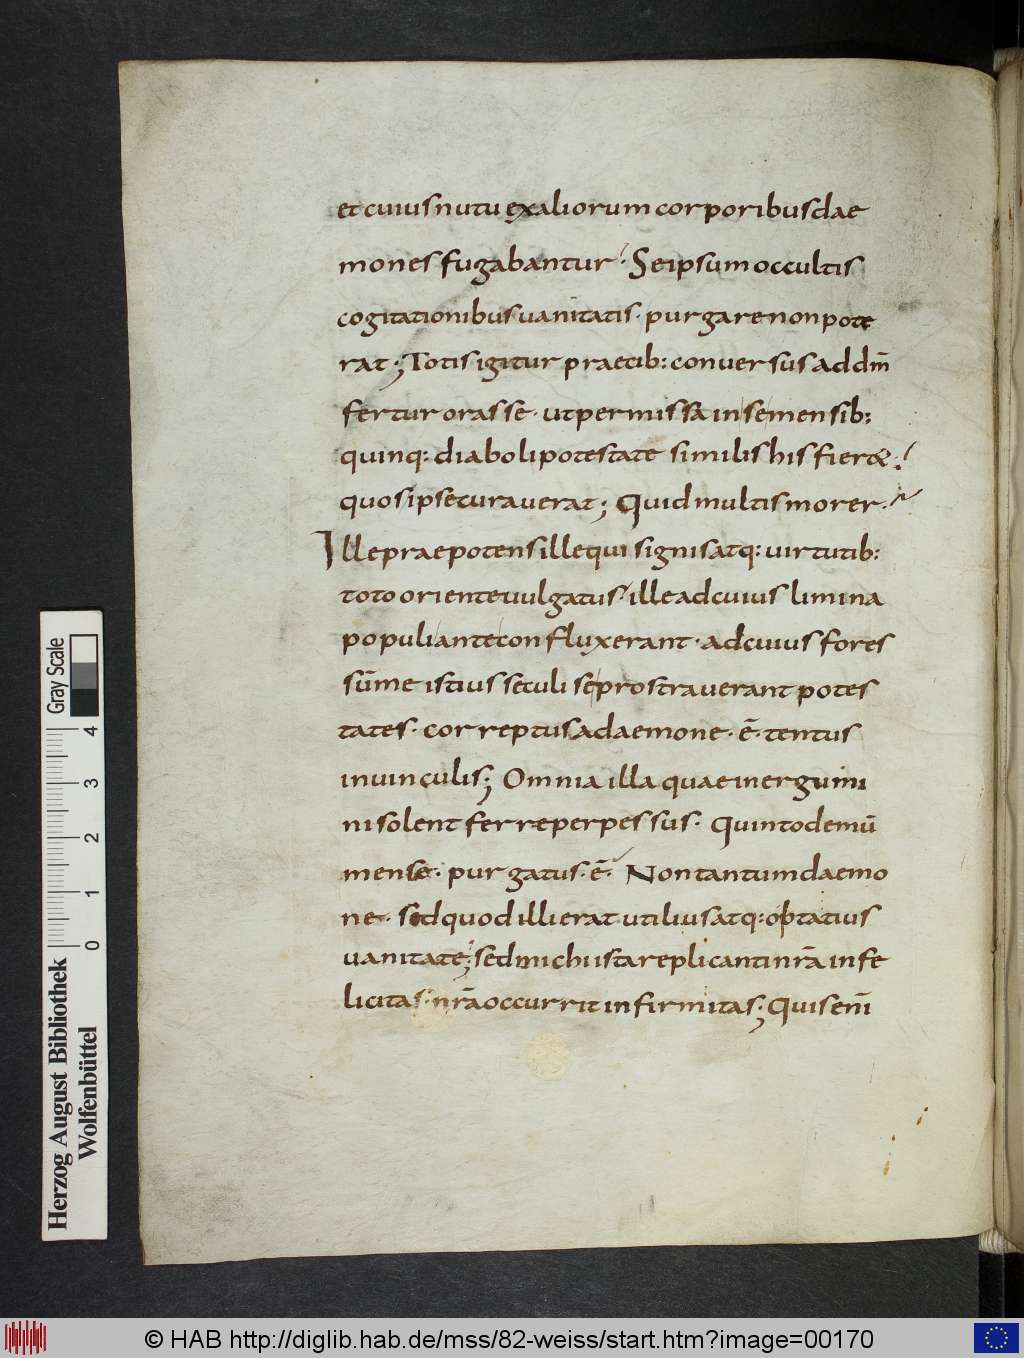 et cuius nutu ex aliorum corporibus dae
mones fugabantur · Se ipsum occultis
cogitationibus uanitatis · purgare non pote
rat ; Totis igitur praecib: conuersus ad dm̄
fertur orasse · ut permissa in se mensib:
quinq: diaboli potestate similis his fieret
quos ipse curauerat ; Quid multis morer ·
Ille praepotens ille qui signis atq: uirtutib:
toto oriente uulgatus · ille ad cuius limina
populi ante confluxerant · ad cuius fores
sūme istius seculi se prostrauerant potes
tates · correptus a daemone · ē · tentus
in uinculis ; Omnia illa quae inergumi
ni solent ferre perpessus · Quinto demū
mense · purgatus · ē · Non tantum daemo
ne · sed quod illi erat utilius atq: optatius
uanitate ; sed mihi ista replicanti nr̄a infe
licitas · nr̄a occurrit infirmitas ; Quis enī
Herzog August Bibliothek
Wolfenbüttel
Gray Scale
0 1 2 3 4
© HAB http://diglib.hab.de/mss/82-weiss/start.htm?image=00170